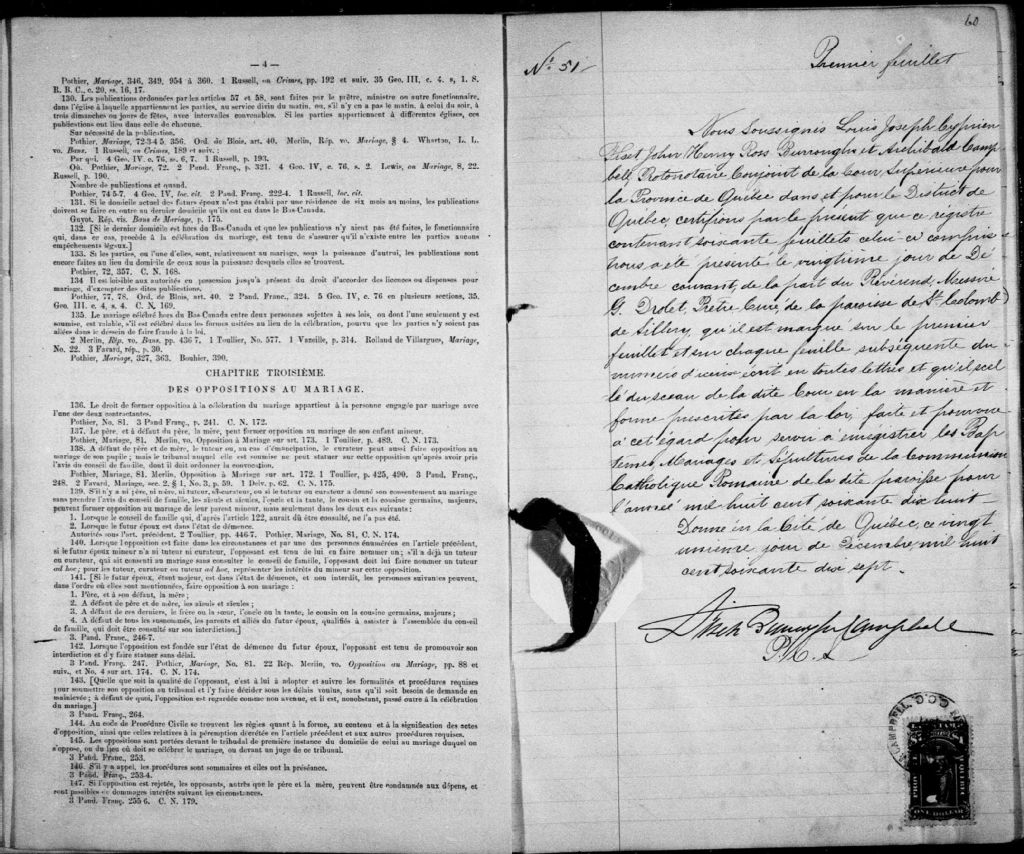 — 4 —
Pothier, Mariage, 346, 349, 954 à 360. 1 Russell, on Crimes, pp. 192 et suiv. 35 Geo. III, c. 4. s, 1. S.
R. B. C., c. 20, ss. 16, 17.
130. Les publications ordonnées par les articles 57 et 58, sont faites par le prêtre, ministre ou autre fonctionnaire,
dans l'église à laquelle appartiennent les parties, au service divin du matin, ou, s'il n'y en a pas le matin, à celui du soir, à
trois dimanches ou jours de fêtes, avec intervalles convenables. Si les parties appartiennent à différentes églises, ces
publications ont lieu dans celle de chacune.
Sur nécessité de la publication.
Pothier, Mariage, 72-3-4 5. 356. Ord. de Blois, art. 40. Merlin, Rép. vo. Mariage, § 4. Wharton, L. L.
vo. Bans. 1 Russell, on Crimes, 189 et suiv.:
Par qui. 4 Geo. IV. c. 76, ss. 6, 7. 1 Russell, p. 193.
Où. Pothier, Mariage, 72. 2 Pand. Franç., p. 321. 4 Geo. IV, c. 76, s. 2. Lewis, on Mariage, 8, 22.
Russell, p. 190.
Nombre de publications et quand.
Pothier, 74 5-7. 4 Geo. IV, loc. cit. 2 Pand. Franç. 222-4. 1 Russell, loc. cit.
131. Si le domicile actuel des futurs époux n'est pas établi par une résidence de six mois au moins, les publications
doivent se faire en outre au dernier domicile qu'ils ont eu dans le Bas-Canada.
Guyot, Rép. vis. Bans de Mariage, p. 175.
132. [Si le dernier domicile est hors du Bas-Canada et que les publications n'y aient pas été faites, le fonctionnaire
qui, dans ce cas, procède à la célébration du mariage, est tenu de s'assurer qu'il n'existe entre les parties aucuns
empêchements légaux.]
133. Si les parties, ou l'une d'elles, sont, relativement au mariage, sous la puissance d'autrui, les publications sont
encore faites au lieu du domicile de ceux sous la puissance desquels elles se trouvent.
Pothier, 72, 357. C. N. 168.
134 Il est loisible aux autorités en possession jusqu'à présent du droit d'accorder des licences ou dispenses pour
mariage, d'exempter des dites publications.
Pothier, 77, 78. Ord. de Blois, art. 40. 2 Pand. Franç., 324. 5 Geo. IV, c. 76 en plusieurs sections, 35.
Geo. III. c. 4, s. 4. C. N. 169.
135. Le mariage célébré hors du Bas-Canada entre deux personnes sujettes à ses lois, ou dont l'une seulement y est
soumise, est valable, s'il est célébré dans les formes usitées au lieu de la célébration, pourvu que les parties n'y soient pas
allées dans le dessein de faire fraude à la loi.
2 Merlin, Rép. vo. Bans, pp. 436 7, 1 Toullier, No. 577. 1 Vazeille, p. 314. Rolland de Villargues, Mariage,
No. 22. 3 Favard, rép., p. 30.
Pothier, Mariage, 327, 363. Bouhier, 390.
CHAPITRE TROISIÈME.
DES OPPOSITIONS AU MARIAGE.
136. Le droit de former opposition à la célébration du mariage appartient à la personne engagée par mariage avec
l'une des deux contractantes.
Pothier, No. 81. 3 Pand Franç., p. 241. C. N. 172.
137. Le père, et à défaut du père, la mère, peut former opposition au mariage de son enfant mineur.
Pothier, Mariage, 81. Merlin, vo. Opposition à Mariage sur art. 173. 1 Toullier, p. 489. C. N. 173.
138. A défaut de père et de mère, le tuteur, ou, au cas d'émancipation, le curateur peut aussi faire opposition au
mariage de son pupile; mais le tribunal auquel elle est soumise ne peut statuer sur cette opposition qu'après avoir pris
l'avis du conseil de famille, dont il doit ordonner la convocation.
Pothier, Mariage, 81. Merlin, Opposition à Mariage sur art. 172. 1 Toullier, p. 425, 490. 3 Pand. Franç.,
248. 2 Favard, Mariage, sec. 2. § 1, No. 3, p. 59. 1 Delv. p. 62. C. N. 175.
139. S'il n'y a ni père, ni mère, ni tuteur, ni curateur, ou si le tuteur ou curateur a donné son consentement au mariage
sans prendre l'avis du conseil de famille, les aïeuls et aïeules, l'oncle et la tante, le cousin et la cousine germains, majeurs,
peuvent former opposition au mariage de leur parent mineur, mais seulement dans les deux cas suivants:
1. Lorsque le conseil de famille qui, d'après l'article 122, aurait dû être consulté, ne l'a pas été.
2. Lorsque le futur époux est dans l'état de démence.
Autorités sous l'art. précédent. 2 Toullier, pp. 446-7. Pothier, Mariage, No. 81, C. N. 174.
140. Lorsque l'opposition est faite dans les circonstances et par une des personnes énumérées en l'article précédent,
si le futur époux mineur n'a ni tuteur ni curateur, l'opposant est tenu de lui en faire nommer un; s'il a déjà un tuteur
ou curateur, qui ait consenti au mariage sans consulter le conseil de famille, l'opposant doit lui faire nommer un tuteur
ad hoc; pour les tuteur, curateur ou tuteur ad hoc, représenter les intérêts du mineur sur cette opposition.
141. [Si le futur époux, étant majeur, est dans l'état de démence, et non interdit, les personnes suivantes peuvent,
dans l'ordre où elles sont mentionnées, faire opposition à son mariage:
1. Père, et à son défaut, la mère;
2. A défaut de père et de mère, les aïeuls et aïeules;
3. A défaut de ces derniers, le frère ou la sœur, l'oncle ou la tante, le cousin ou la cousine germains, majeurs;
4. A défaut de tous les susnommés, les parents et alliés du futur époux, qualifiés à assister à l'assemblée du conseil
de famille, qui doit être consulté sur son interdiction.]
3. Pand. Franç., 246-7.
142. Lorsque l'opposition est fondée sur l'état de démence du futur époux, l'opposant est tenu de promouvoir son
interdiction et d'y faire statuer sans délai.
3 Pand. Franç. 247. Pothier, Mariage, No. 81. 22 Rép. Merlin, vo. Opposition au Mariage, pp. 88 et
suiv., et No. 4 sur art. 174. C. N. 174.
143. [Quelle que soit la qualité de l'opposant, c'est à lui à adopter et suivre les formalités et procédures requises
pour soumettre son opposition au tribunal et l'y faire décider sous les délais voulus, sans qu'il soit besoin de demande en
mainlevée; à défaut de quoi, l'opposition est regardée comme non avenue, et il est, nonobstant, passé outre à la célébration
du mariage.]
3 Pand. Franç., 264.
144. Au code de Procédure Civile se trouvent les règles quant à la forme, au contenu et à la signification des actes
d'opposition, ainsi que celles relatives à la péremption décrétée en l'article précédent et aux autres procédures requises.
145. Les oppositions sont portées devant le tribunal de première instance du domicile de celui au mariage duquel on
s'oppose, ou du lieu où doit se célébrer le mariage, ou devant un juge de ce tribunal.
3 Pand. Franc., 253.
146. S'il y a appel, les procédures sont sommaires et elles ont la préséance.
3 Pand. Franç., 253-4.
147. Si l'opposition est rejetée, les opposants, autres que le père et la mère, peuvent être condamnés aux dépens, et
sont passibles de dommages intérêts suivant les circonstances.
3 Pand. Franç. 255 6. C. N. 179.
60
No. 51
Premier feuillet
Nous Soussignés Louis Joseph Cyprien
Fiset John Henry Ross Burroughs et Archibald Camp
bell Protonotaire Conjoint de la Cour Supérieure pour
la Province de Québec dans et pour le District de
Québec, certifions par le présent que ce régistre
contenant soixante feuillets celui ci compris
nous a été présenté le vingtième jour de Dé
cembre courant, de la part du Révérend Messire
G. Drolet, Prêtre Curé, de la paroisse de St. Colomb
de Sillery, qu'il est marqué sur le premier
feuillet et sur chaque feuille subséquente du
numéro d'iceux écrit en toutes lettres et qu'il scel
lé du sceau de la dite Cour en la manière et
forme prescrites par la loi, faite et pourvue
à cet égard pour servir à enregistrer les Bap
têmes, Mariages et Sépultures de la Communion
Catholique Romaine de la dite paroisse pour
l'année mil huit cent soixante dix huit
Donné en la Cité de Québec, ce vingt
unième jour de Décembre mil huit
cent soixante dix sept.
Fiset Burroughs Campbell
P.C.S
CAMPBELL C.C.Q.
ONE DOLLAR